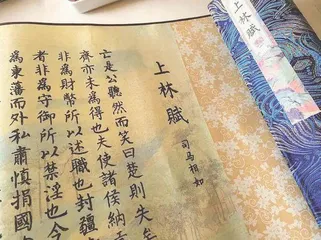 上林賦
上林賦
司馬相如
亡是公聽然而笑曰楚則失矣
齊亦未為得也夫使諸侯納
非為財幣所以述職也封疆
者非為守御所以禁淫也今
為東藩而外私肅慎捐國